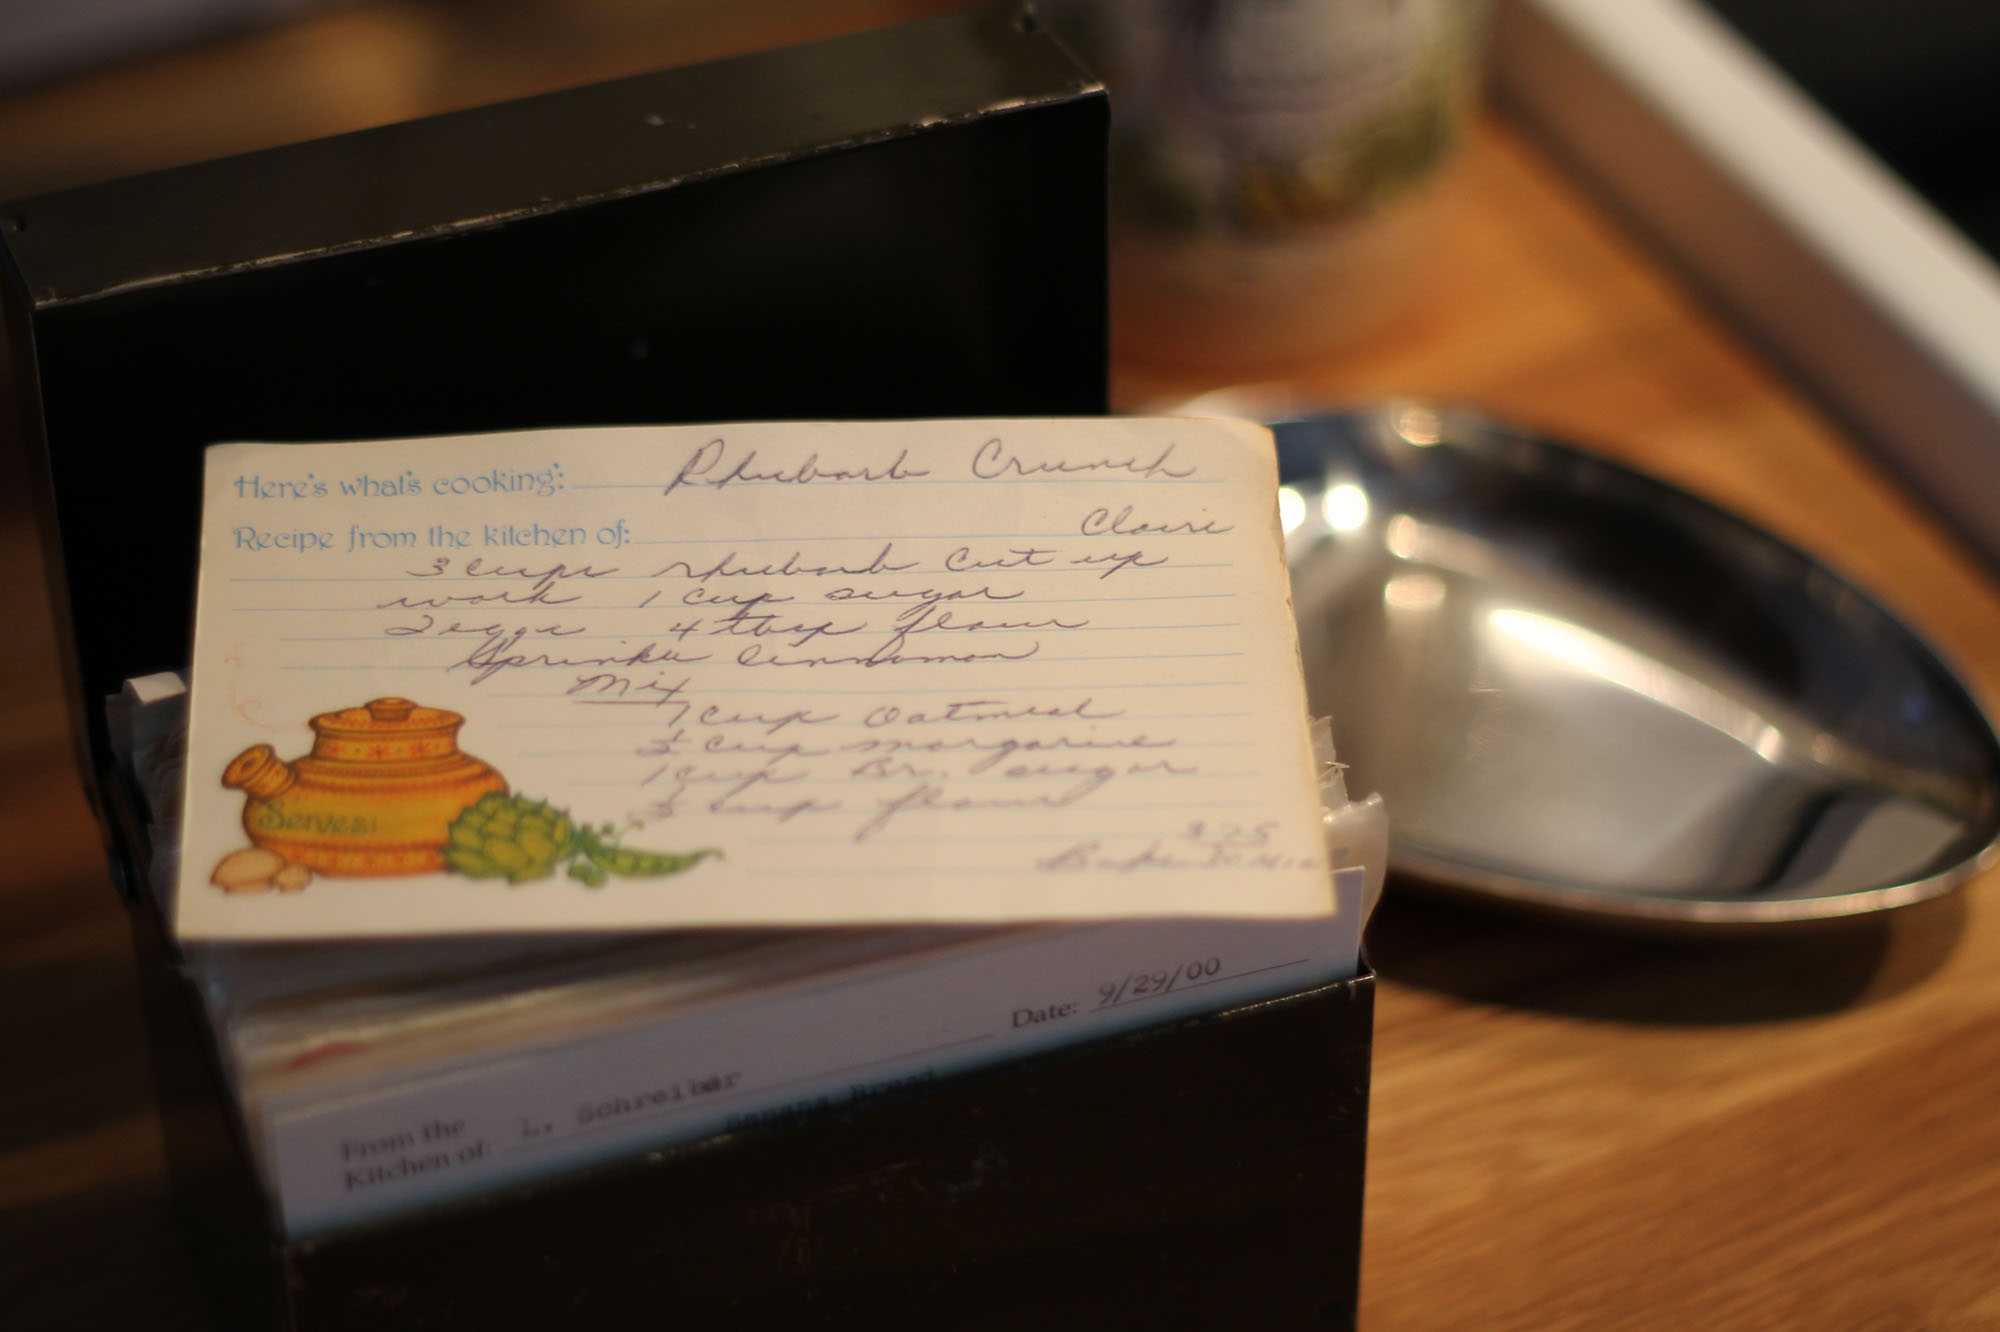 Here's what's cooking: Rhubarb Crunch
Recipe from the kitchen of: Claire
3 cups rhubarb cut up
wash 1 cup sugar
2 eggs 4 tbsp flour
Sprinkle cinnamon
Mix
1 cup oatmeal
½ cup margarine
1 cup Br. sugar
cup flour
Serves:
375
Bake
Date: 9/29/00
From the
Kitchen of: L. Schreiber
Banana Bread